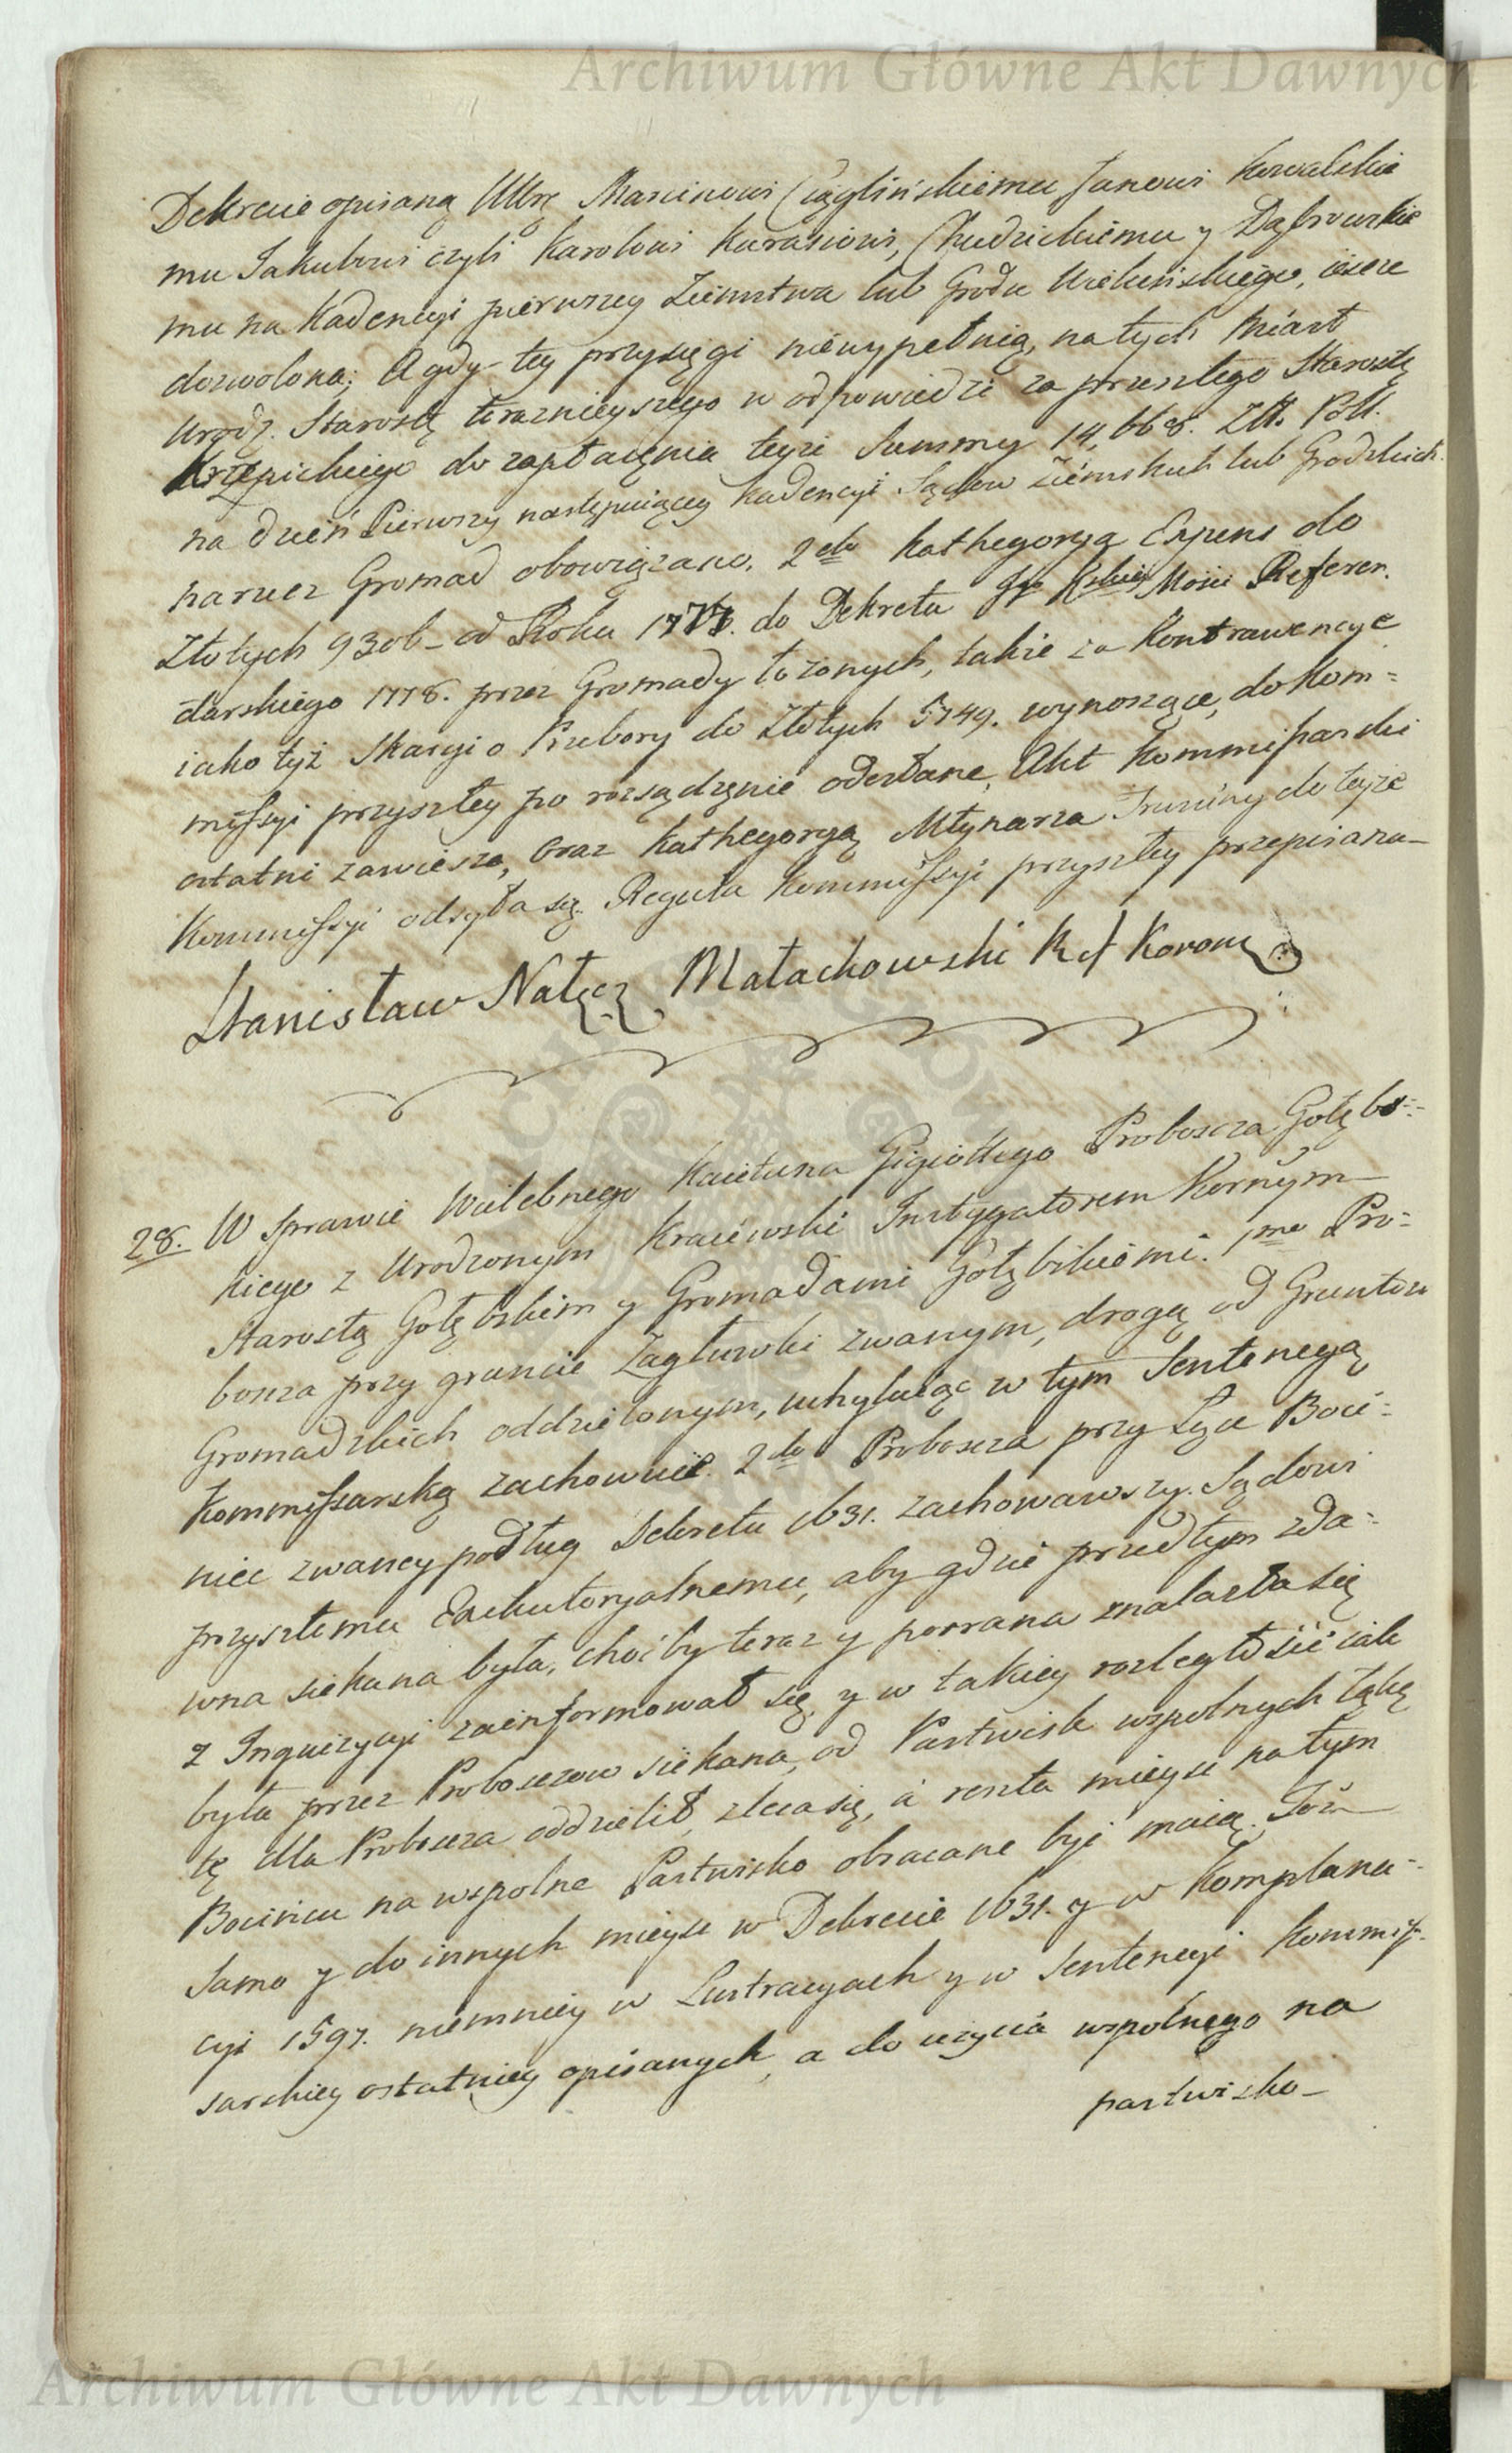 Archiwum Główne Akt Dawnych
Dekrecie opisaną Uttre Marcinowi Ciąglińskiemu Janowi Kowalskie
mu Jakubowi czyli Karolowi Karasiowi, Chudzickiemu y Dąbrowskie
mu na Kadencyi pierwszey Ziemstwa lub Grodu Wieluńskiego, iescze
dozwolona; A gdy tey przysięgi niewypełnią, natych miast
Urodz. Starostę teraznieyszego w odpowiedzi za przeszłego Starostę
Krzepickiego do zapłacenia teyże Summy 14,668. Złł. Poll.
na dzień Pierwszy następuiącey kadencyi Sądow Ziemskich lub Grodzkich
na rzecz Gromad obowiązano. 2do Kathegoryą Expens do
Złotych 9306 od Roku 1777. do Dekretu Jgo Kskiey Mości Referen.
darskiego 1778. przez Gromady łożonych, także za Kontrawencye
iako tyż Skargi o Przebory do Złotych 5749. wynoszące, do Kom=
missyi przyszłey po rozsądzenie odesłane, Akt Kommissarski
ostatni zawiesza, oraz Kathegoryą Młynarza Trzciny do teyże
Kommissyi odsyła się. Reguła Kommissyi przyszłey przepisana
Stanisław Nałęcz Małachowski Ref Koronny
28. W Sprawie Wielebnego Kaietana Gigiottego Proboszcza Gołębs=
kiego z Urodzonym Kraiewski Instygatorem Kornym
Starostą Gołębskim y Gromadami Gołębskiemi. 1mo Pro=
boszcza przy gruncie Zagłuwki zwanym, drogą od Gruntow
Gromadzkich oddzielonym, uchylaiąc w tym Sentencyą
Kommissarską zachownie. 2do Proboszcza przy Łące Boci=
niec zwaney podług Dekretu 1631. zachowawszy. Sądowi
przyszłemu Exekutoryalnemu, aby gdzie przedtym zda=
wna siekana była, choćby teraz y porrana znalazła się
z Inquizycyi zainformował się, y w takiey rozległości iak
była przez Proboszczow siekana, od Pastwisk wspolnych łąkę
tę dla Proboszcza oddzielił, zleca się, a reszta mieysc na tym
Bocińcu na wspolne Pastwisko obracane być maią. Toż
Samo y do innych mieysc w Dekrecie 1631. y w Komplana=
cyi 1597. niemniey w Lustracyach y w Sentencyi Kommis=
sarskiey ostatniey opisanych, a do użycia wspolnego na
pastwisko
Archiwum Główne Akt Dawnych